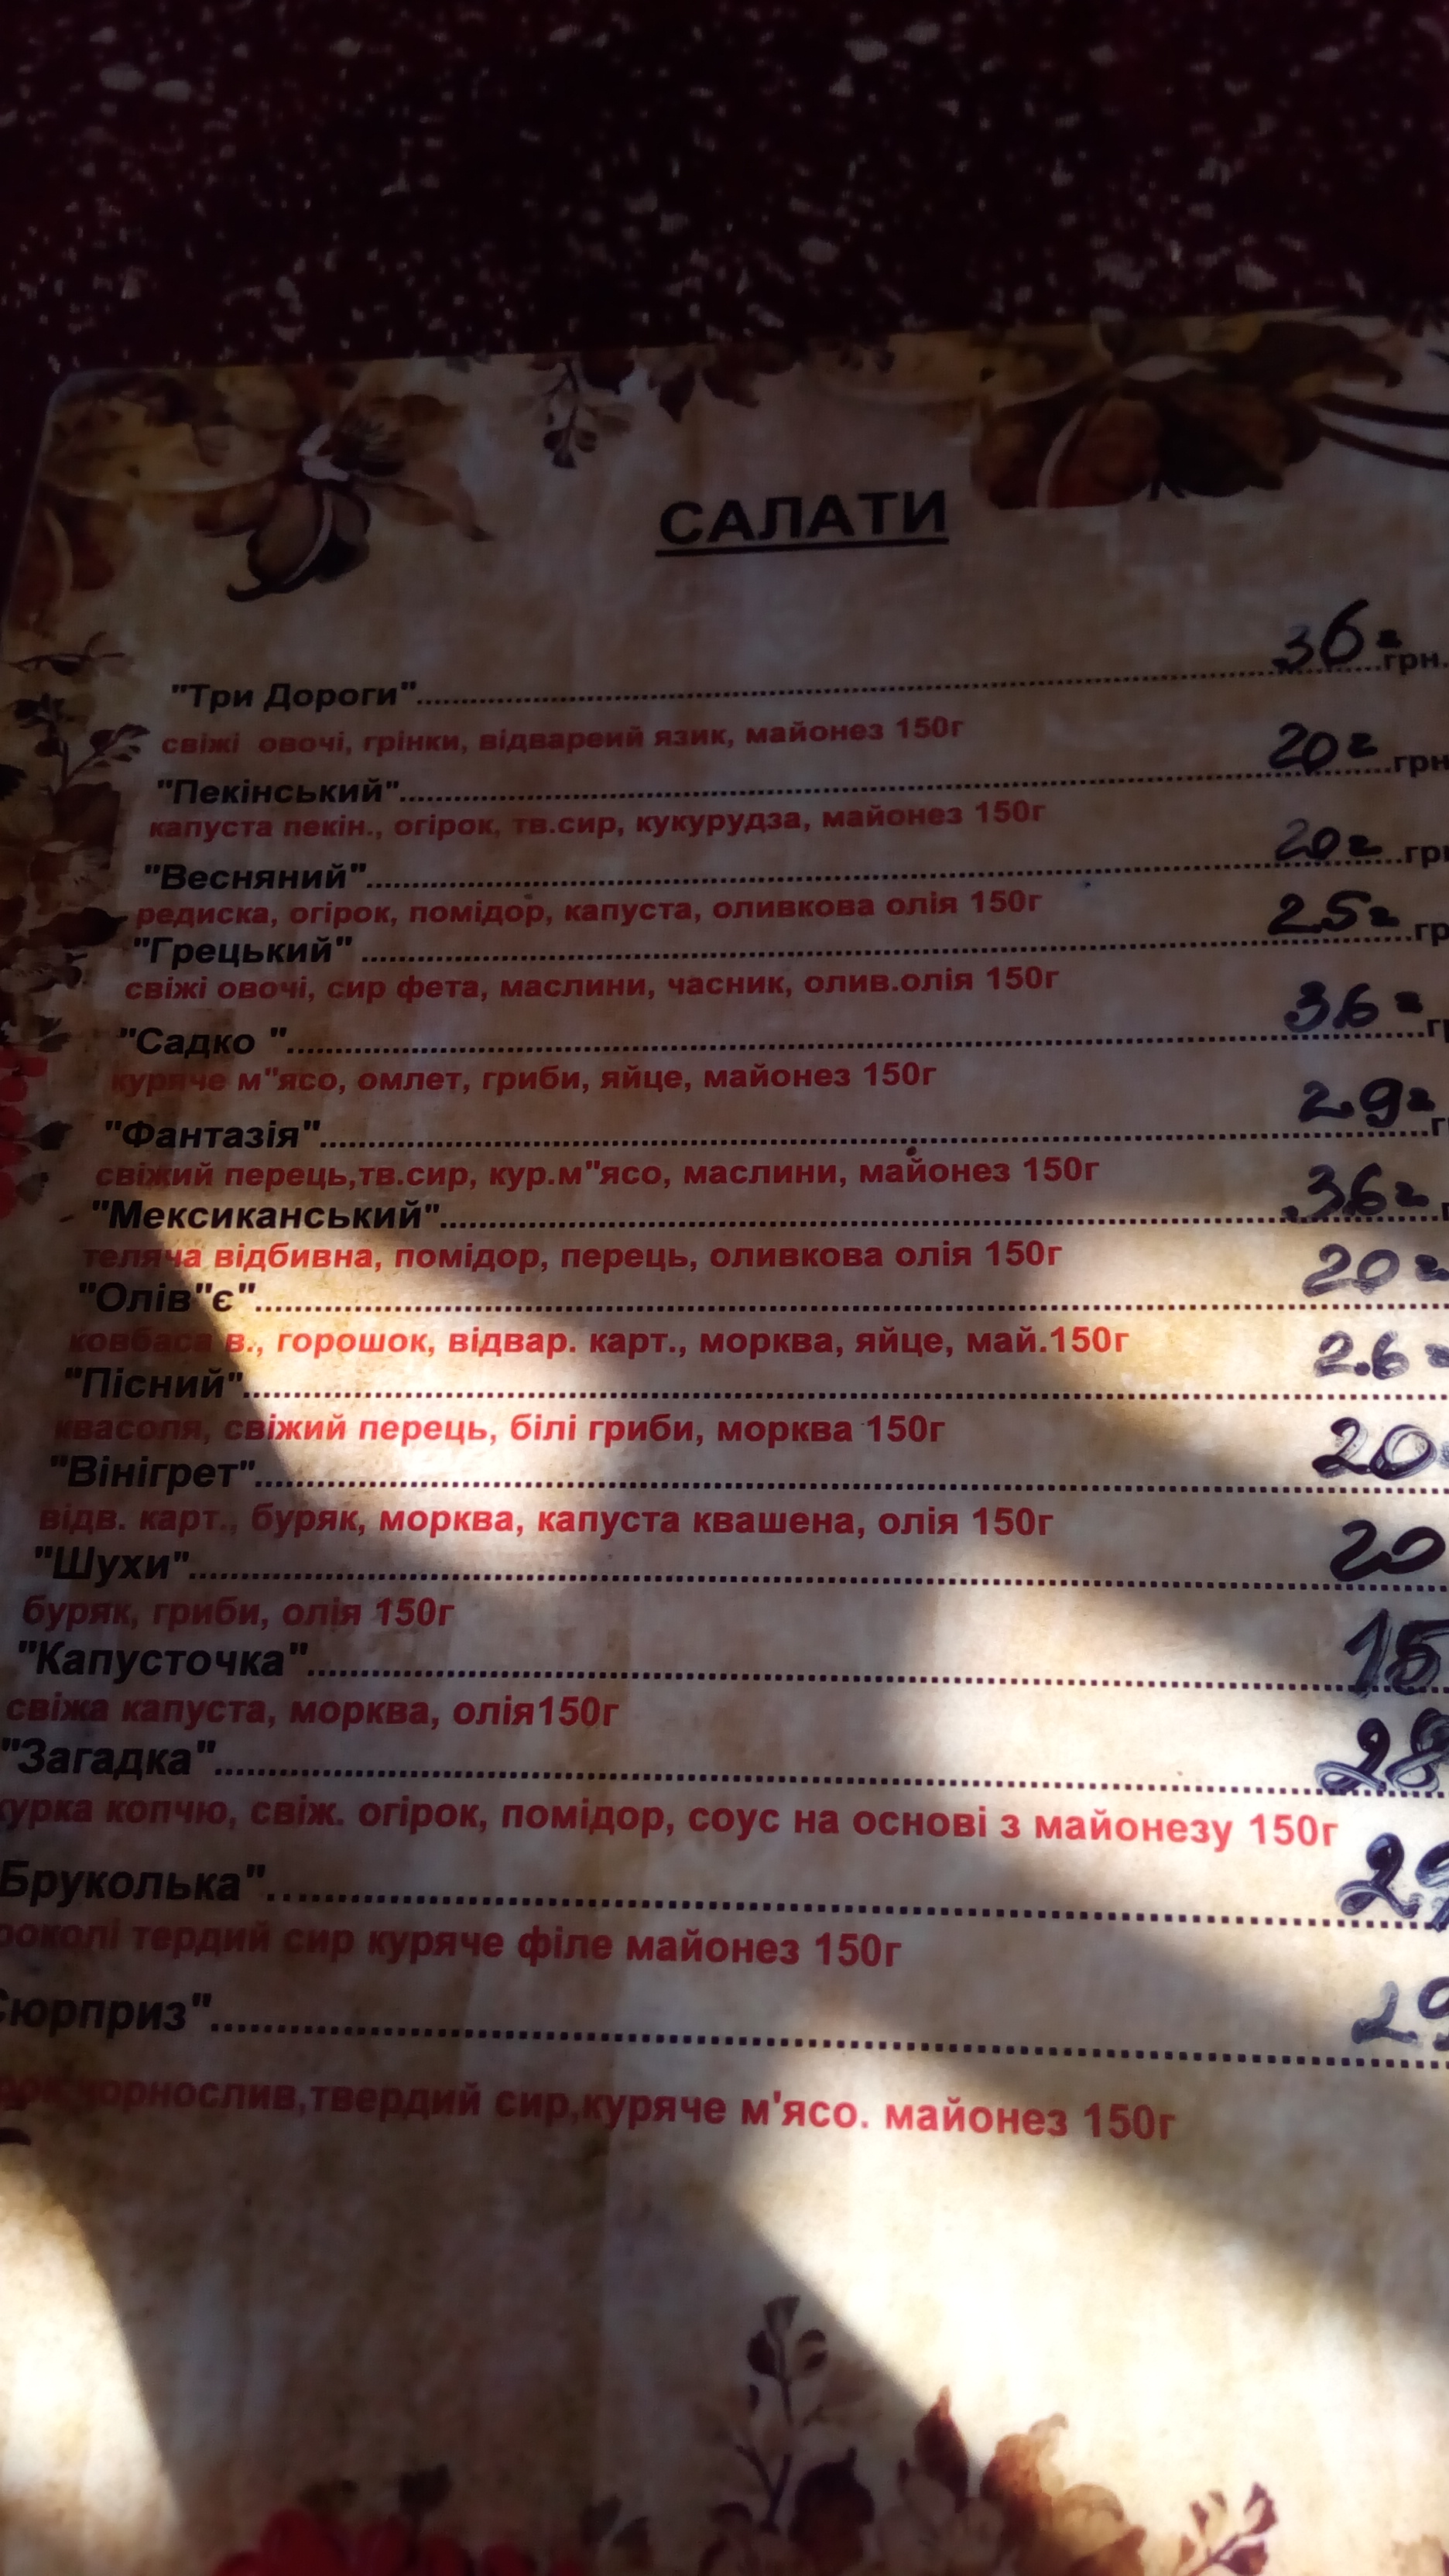 САЛАТИ
"Три Дороги"..........36 г грн.
свіжі овочі, грінки, відвареий язик, майонез 150г
"Пекінський"..........20 г грн
капуста пекін., огірок, тв.сир, кукурудза, майонез 150г
"Весняний"..........20 г грн
редиска, огірок, помідор, капуста, оливкова олія 150г
"Грецький" ..........25 г гр
свіжі овочі, сир фета, маслини, часник, олив.олія 150г
"Садко "..........36 г г
куряче м"ясо, омлет, гриби, яйце, майонез 150г
"Фантазія"..........29 г г
свіжий перець,тв.сир, кур.м"ясо, маслини, майонез 150г
"Мексиканський"..........36 г
теляча відбивна, помідор, перець, оливкова олія 150г
"Олів"є"..........20 г
ковбаса в., горошок, відвар. карт., морква, яйце, май.150г
"Пісний"..........26
квасоля, свіжий перець, білі гриби, морква 150г
"Вінігрет"..........20
відв. карт., буряк, морква, капуста квашена, олія 150г
"Шухи"..........20
буряк, гриби, олія 150г
"Капусточка"..........15
свіжа капуста, морква, олія150г
"Загадка"..........28
курка копчю, свіж. огірок, помідор, соус на основі з майонезу 150г
Бруколька"..........29
роколі тердий сир куряче філе майонез 150г
Сюрприз"..........29
чорнослив,твердий сир,куряче м'ясо. майонез 150г